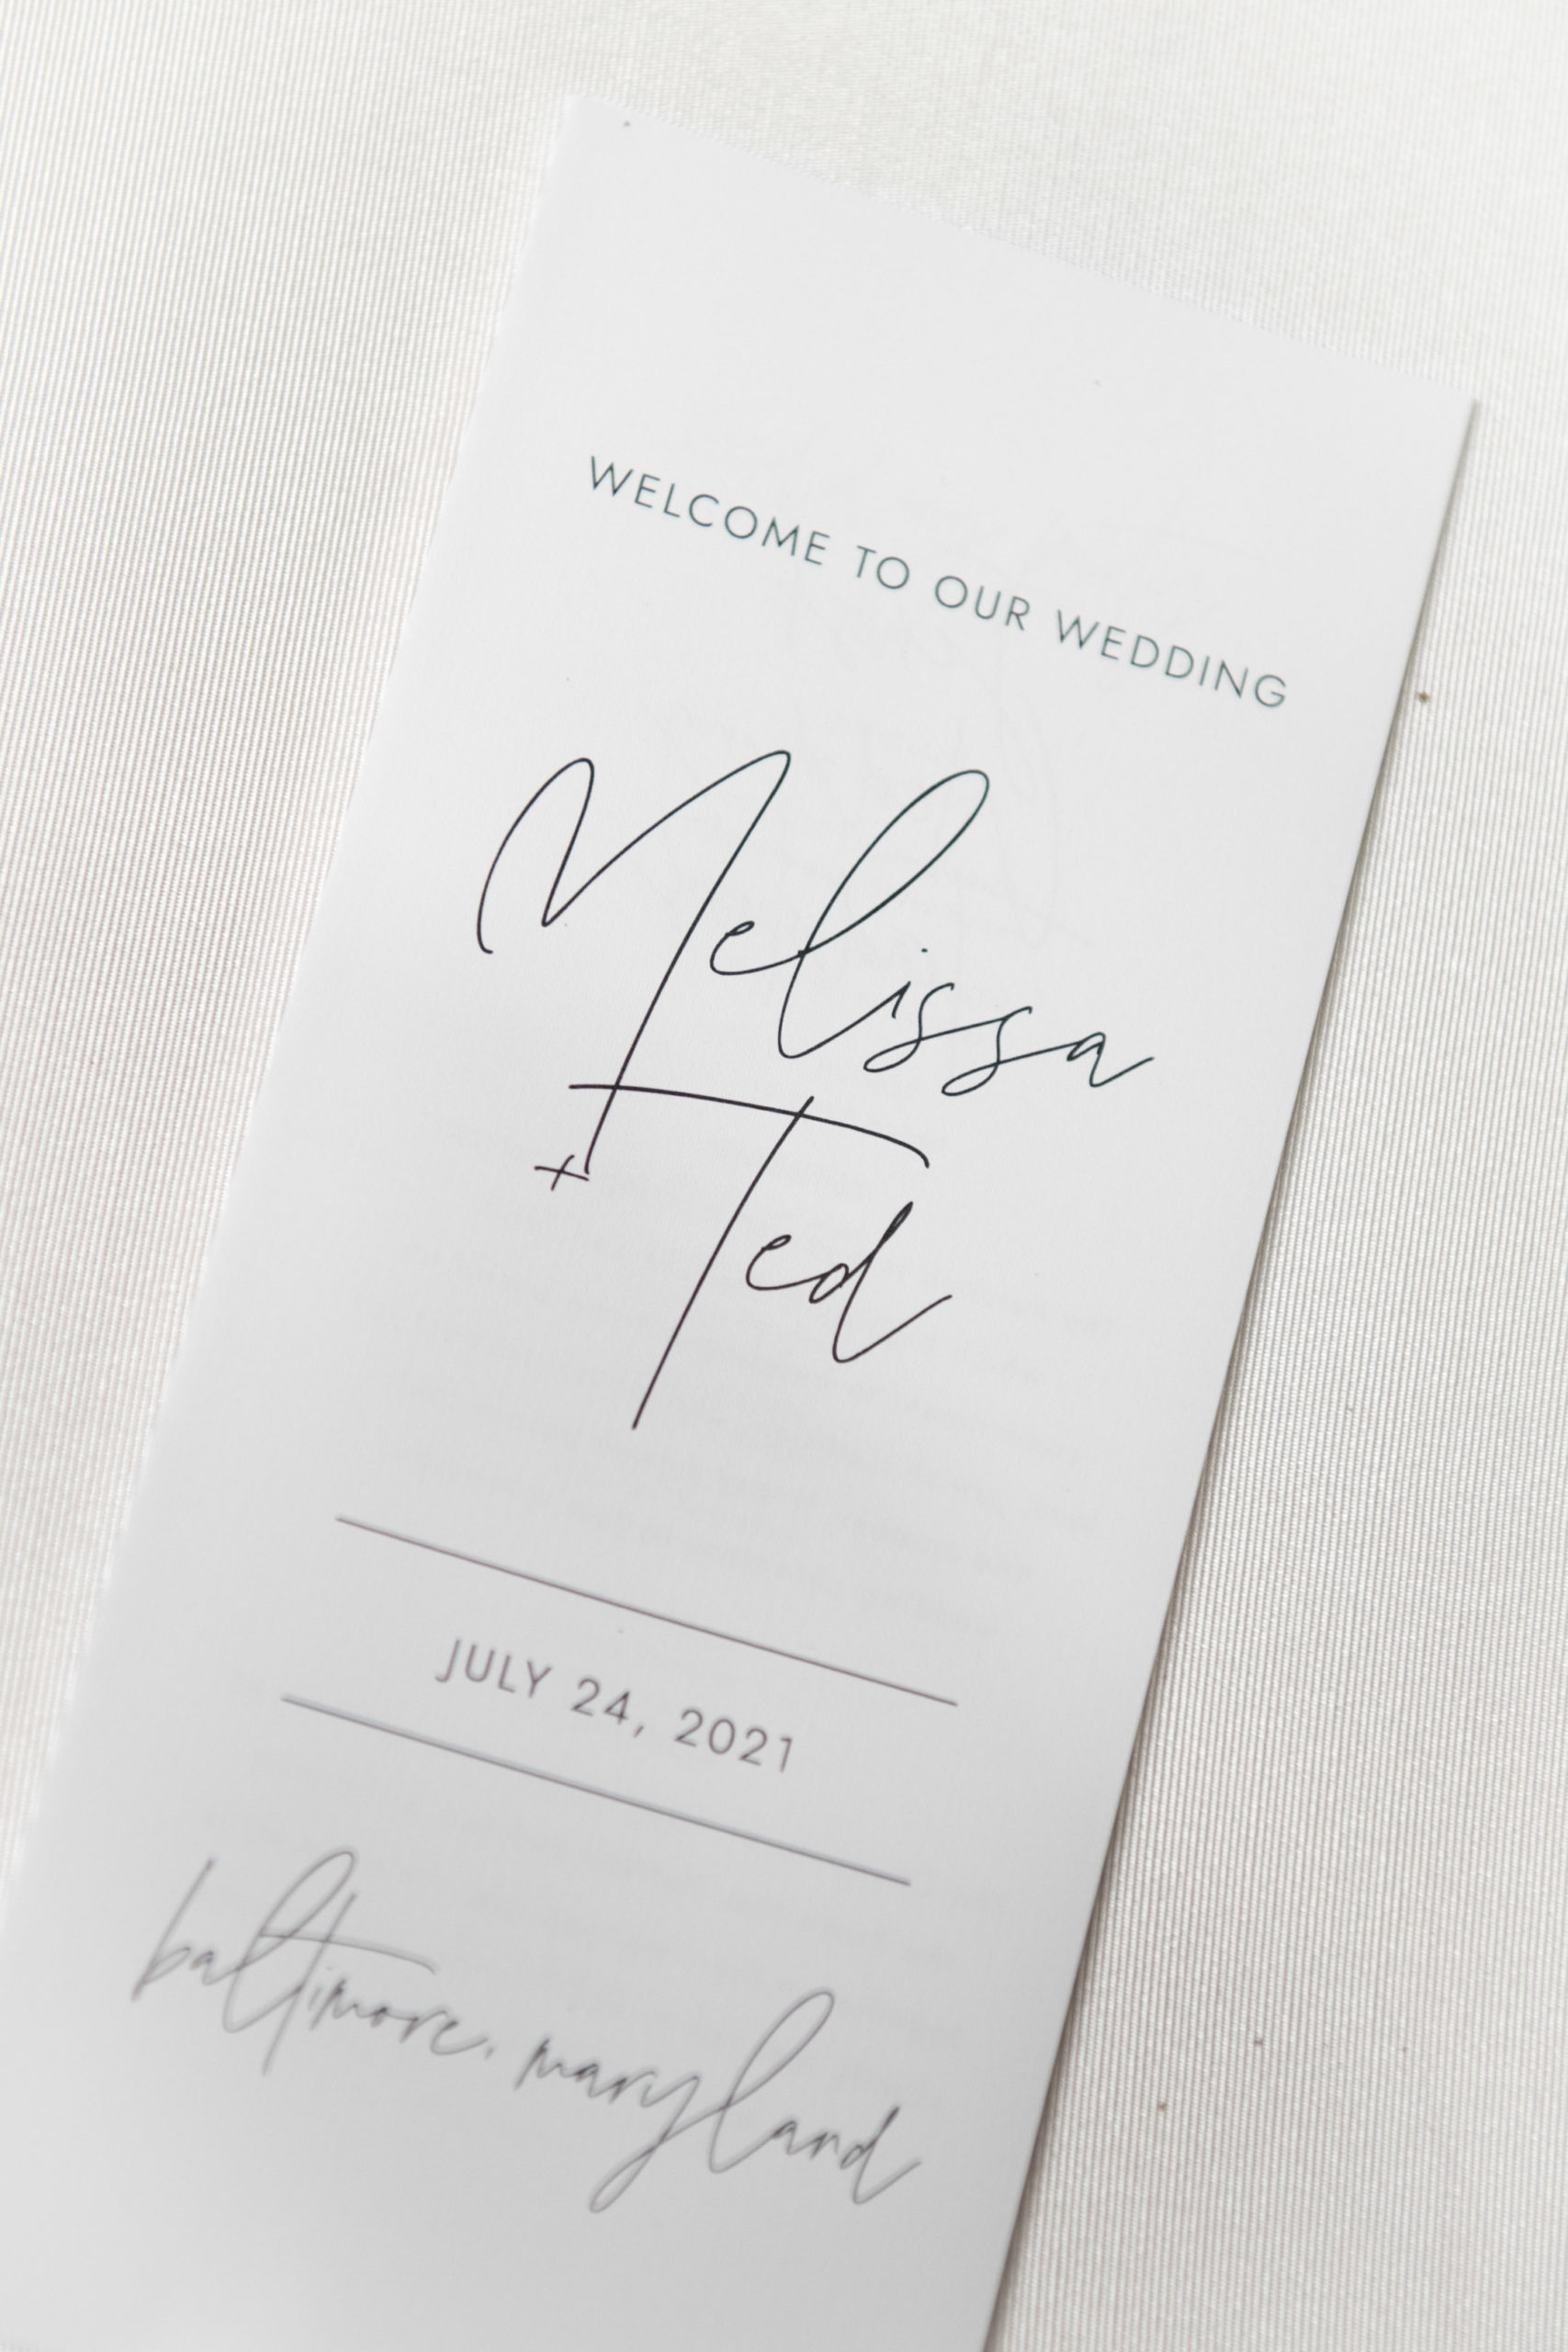 WELCOME TO OUR WEDDING
Melissa
+ Ted
JULY 24, 2021
baltimore, maryland